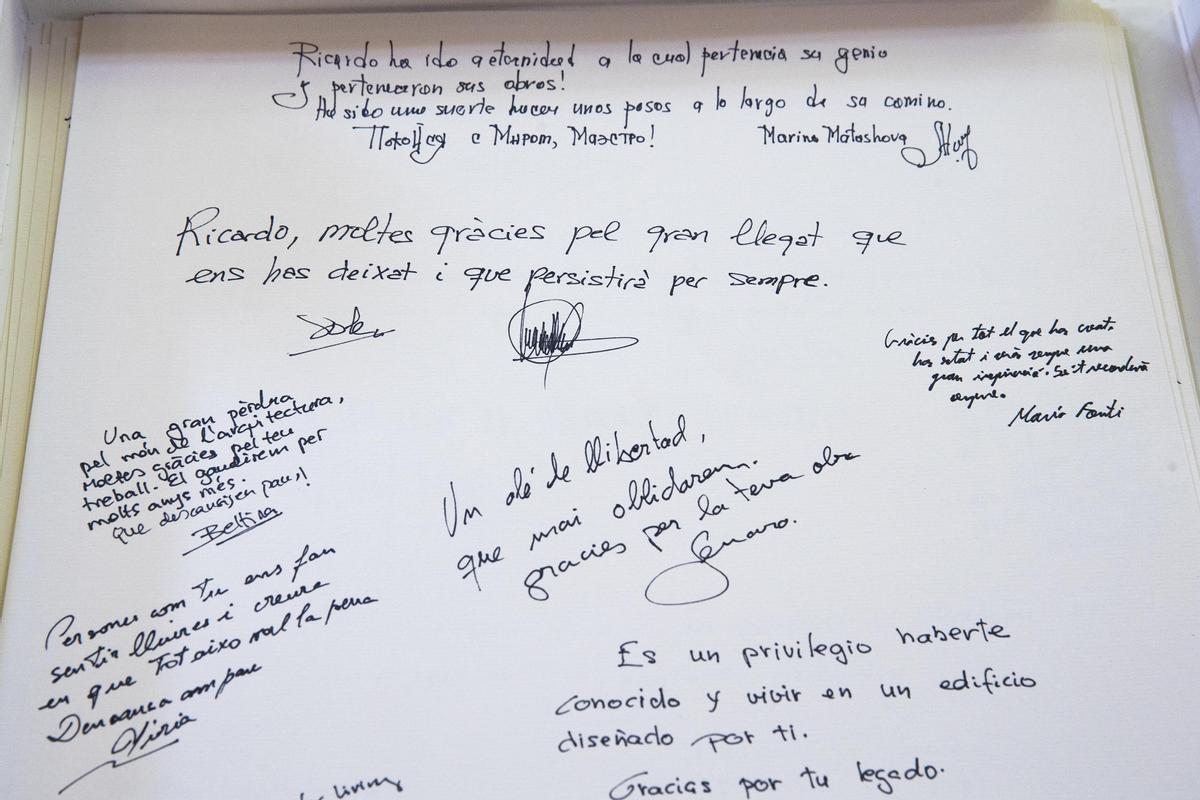 Ricardo ha ido a eternidad a la cual pertencia su genio
y perteneceron sus obros!
Ha sido una suerte hacer unos posos a lo largo de su comino.
Покойся с Миром, Маэстро!
Marina Matoshova
Ricardo, moltes gràcies pel gran llegat que
ens has deixat i que persistirà per sempre.
Gràcies per tot el que has creat.
has estat i seràs sempre una
gran inspiració. Se't recordarà
sempre.
Maria Fonti
Una gran pèrdua
pel món de l'arquitectura,
Moltes gràcies pel teu
treball. El gaudirem per
molts anys més.
Que descansis en pau!
Bettina
Un alé de llibertad,
que mai oblidarem.
gracies per la teva obra
Genaro.
Persones com tu ens fan
sentir lliures i creure
en que tot aixo val la pena
Descansa am pau
Núria
Es un privilegio haberte
conocido y vivir en un edificio
diseñado por ti.
Gracias por tu legado.
living